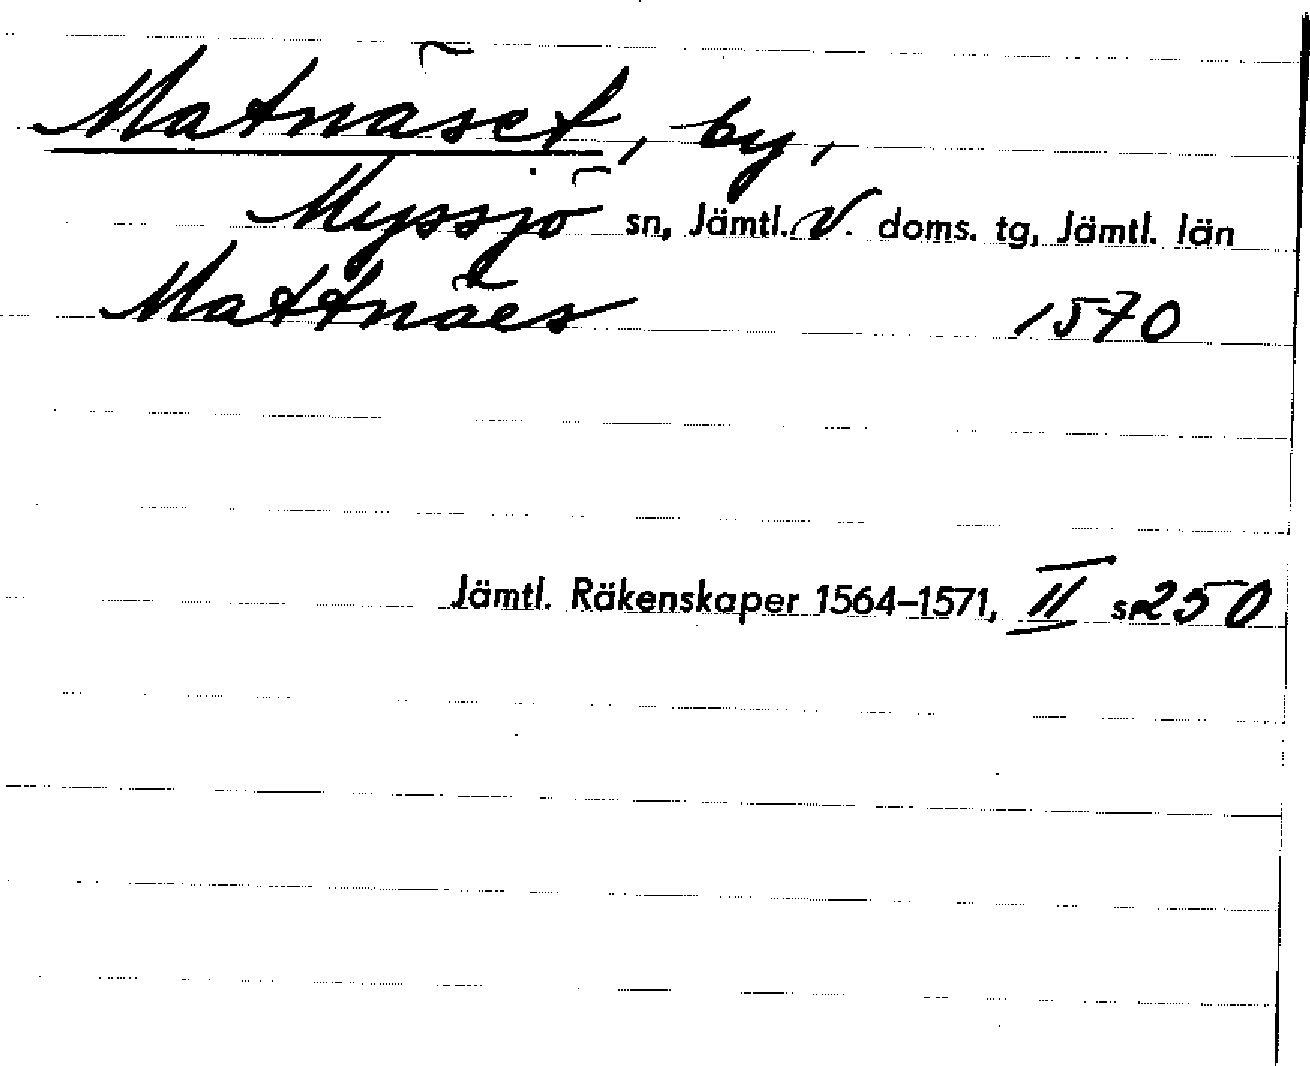 Matnäset, by,
Myssjö sn, Jämtl. V. doms. tg, Jämtl. län
Mattnäes 1570
Jämtl. Räkenskaper 1564–1571, II s. 250